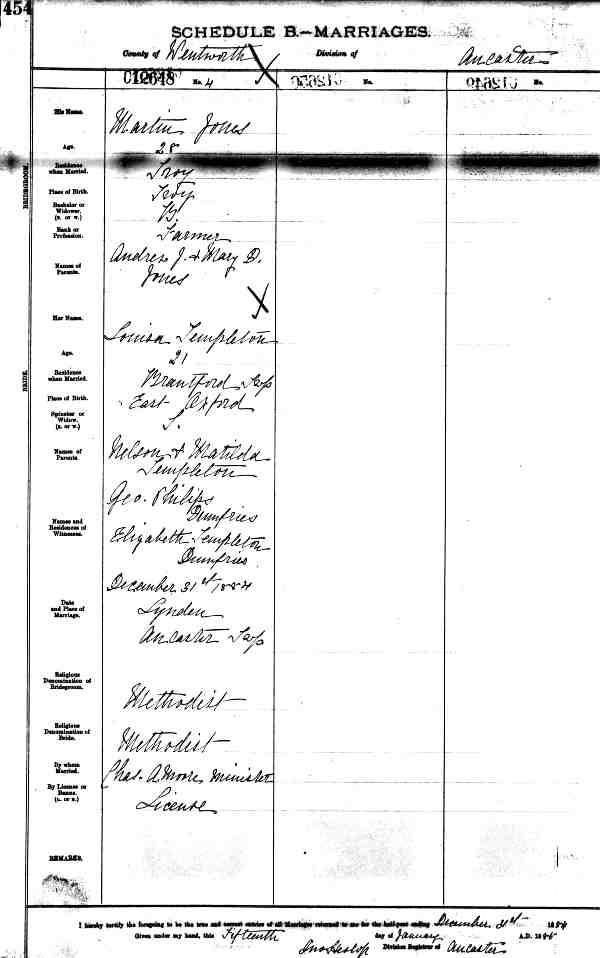 454
SCHEDULE B.—MARRIAGES.
County of Wentworth Division of Ancaster
012648 No. 4 No. No.
His Name. Martin Jones
Age. 28
Residence when Married. Troy
Place of Birth. Troy
Bachelor or Widower. (B. or W.) B.
Rank or Profession. Farmer
Names of Parents. Andrew J. & Mary D.
Jones
BRIDEGROOM.
Her Name. Louisa Templeton
Age. 21
Residence when Married. Brantford Twp
Place of Birth. East Oxford
Spinster or Widow. (S. or W.) S.
BRIDE.
Names of Parents. Nelson & Matilda
Templeton
Names and Residences of Witnesses. Geo. Philips
Dumfries
Elizabeth Templeton
Dumfries
Date and Place of Marriage. December 31st 1884
Lynden
Ancaster Twp
Religious Denomination of Bridegroom. Methodist
Religious Denomination of Bride. Methodist
By whom Married. Chas. A Moore minister
By License or Banns. (L. or B.) License
REMARKS.
I hereby certify the foregoing to be the true and correct entries of all Marriages returned to me for the half-year ending December 31st 1884
Given under my hand, this Fifteenth day of January A.D. 1885
Jno Heslop Division Registrar of Ancaster